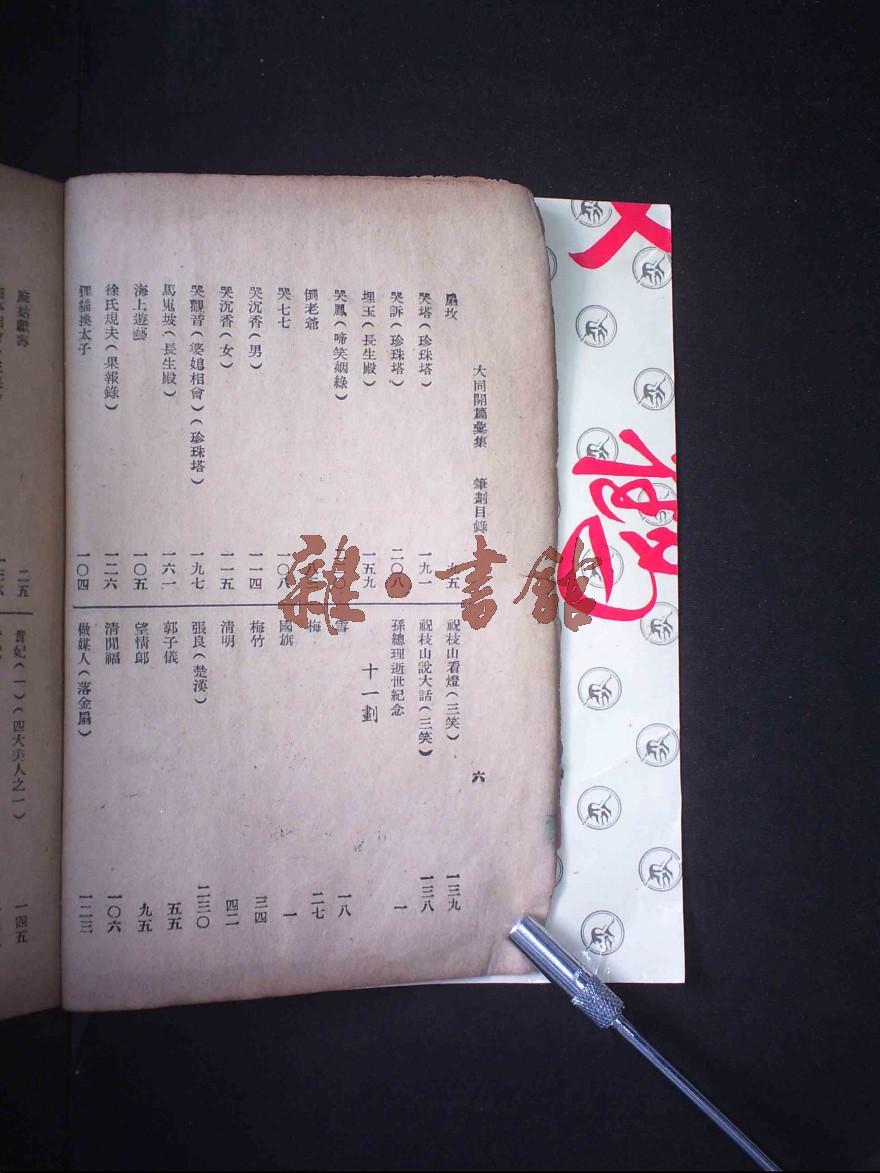 大同開篇彙集　筆劃目錄　六
扇坟　九五
哭塔(珍珠塔)　一九一
哭訴(珍珠塔)　二〇八
埋玉(長生殿)　一五九
哭鳳(啼笑姻緣)
倒老爺
哭七七　一〇八
哭沉香(男)　一一四
哭沉香(女)　一一五
哭觀音(婆媳相會)(珍珠塔)　一九七
馬嵬坡(長生殿)　一六一
海上遊藝　一〇五
徐氏規夫(果報錄)　一二六
狸貓換太子　一〇四
祝枝山看燈(三笑)　一三九
祝枝山說大話(三笑)　一三八
孫總理逝世紀念　一
十一劃
雪　一八
梅　二七
國旗　一
梅竹　三四
清明　四二
張良(楚漢)　二三〇
郭子儀　五五
望情郎　九五
清閒福　一〇六
做媒人(落金扇)　一二三
麻姑獻壽　二五
貴妃(一)(四大美人之一)　一四五
雜·書館